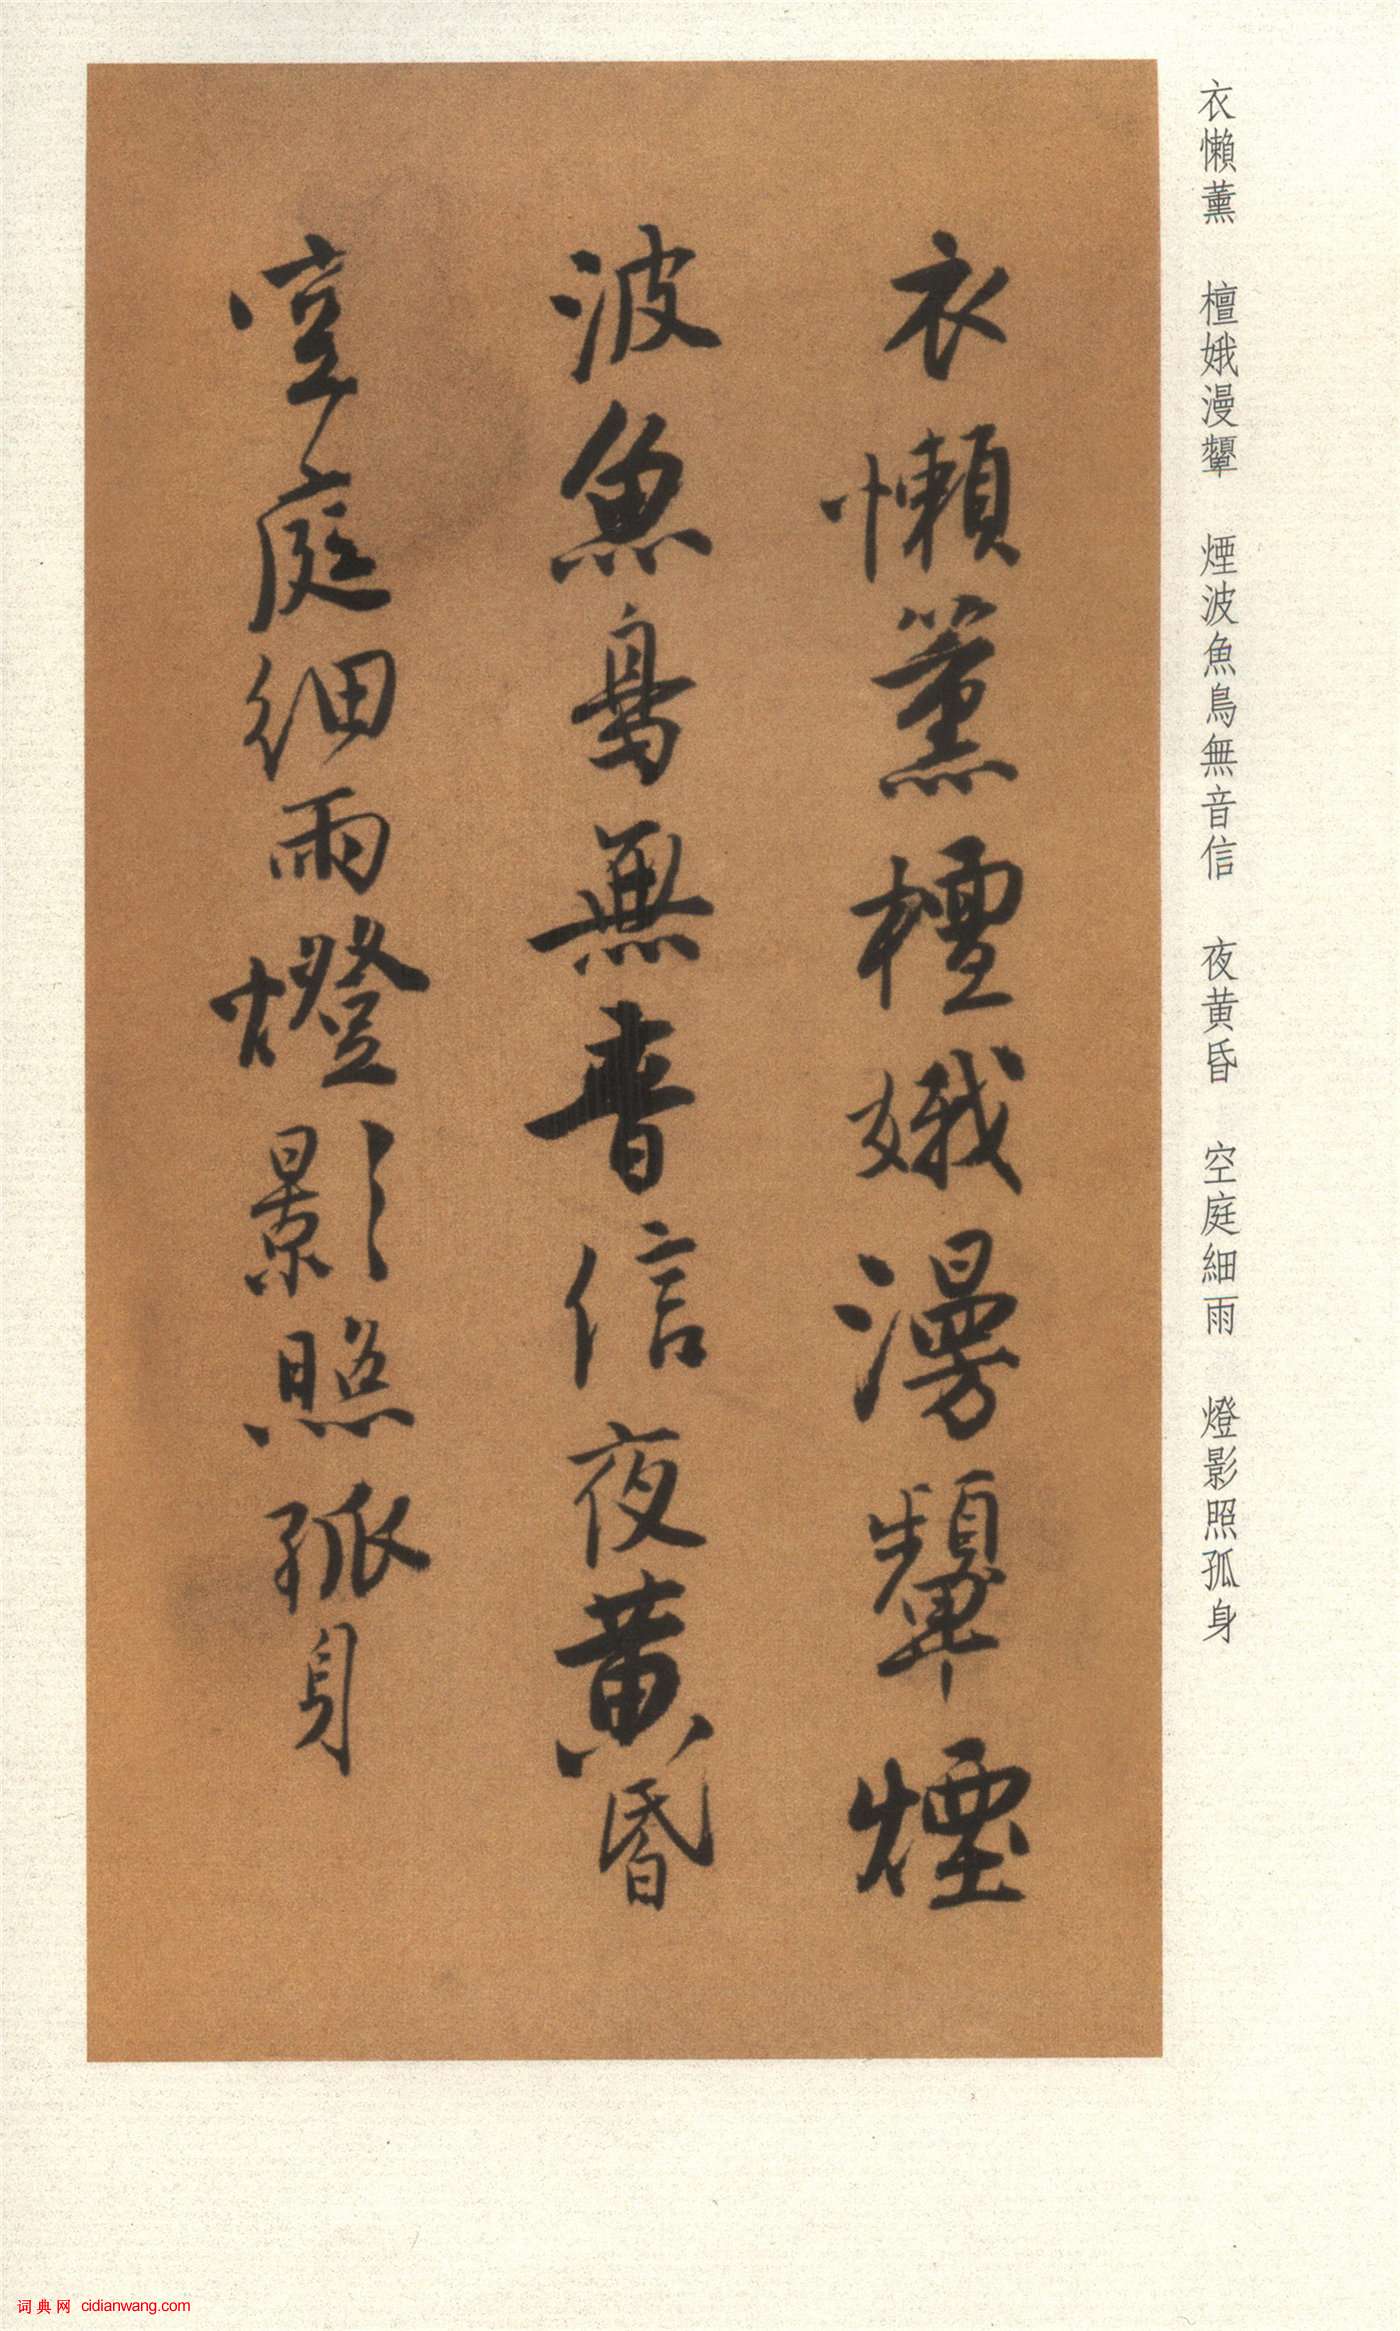 衣懶薰 檀娥漫顰 煙波魚鳥無音信 夜黄昏 空庭細雨 燈影照孤身
衣懶薰檀娥漫顰煙
波魚鳥無音信夜黄昏
空庭細雨燈影照孤身
词典网 cidianwang.com